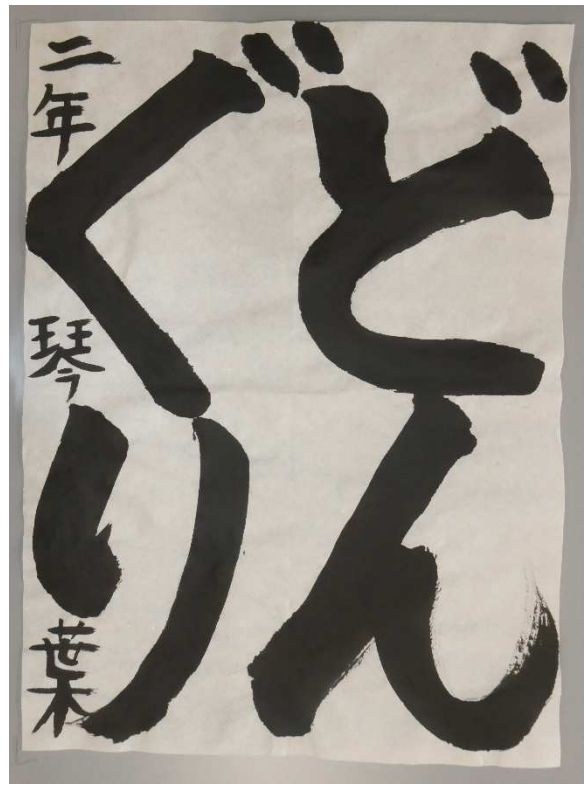 どん
ぐり
二年 琴葉